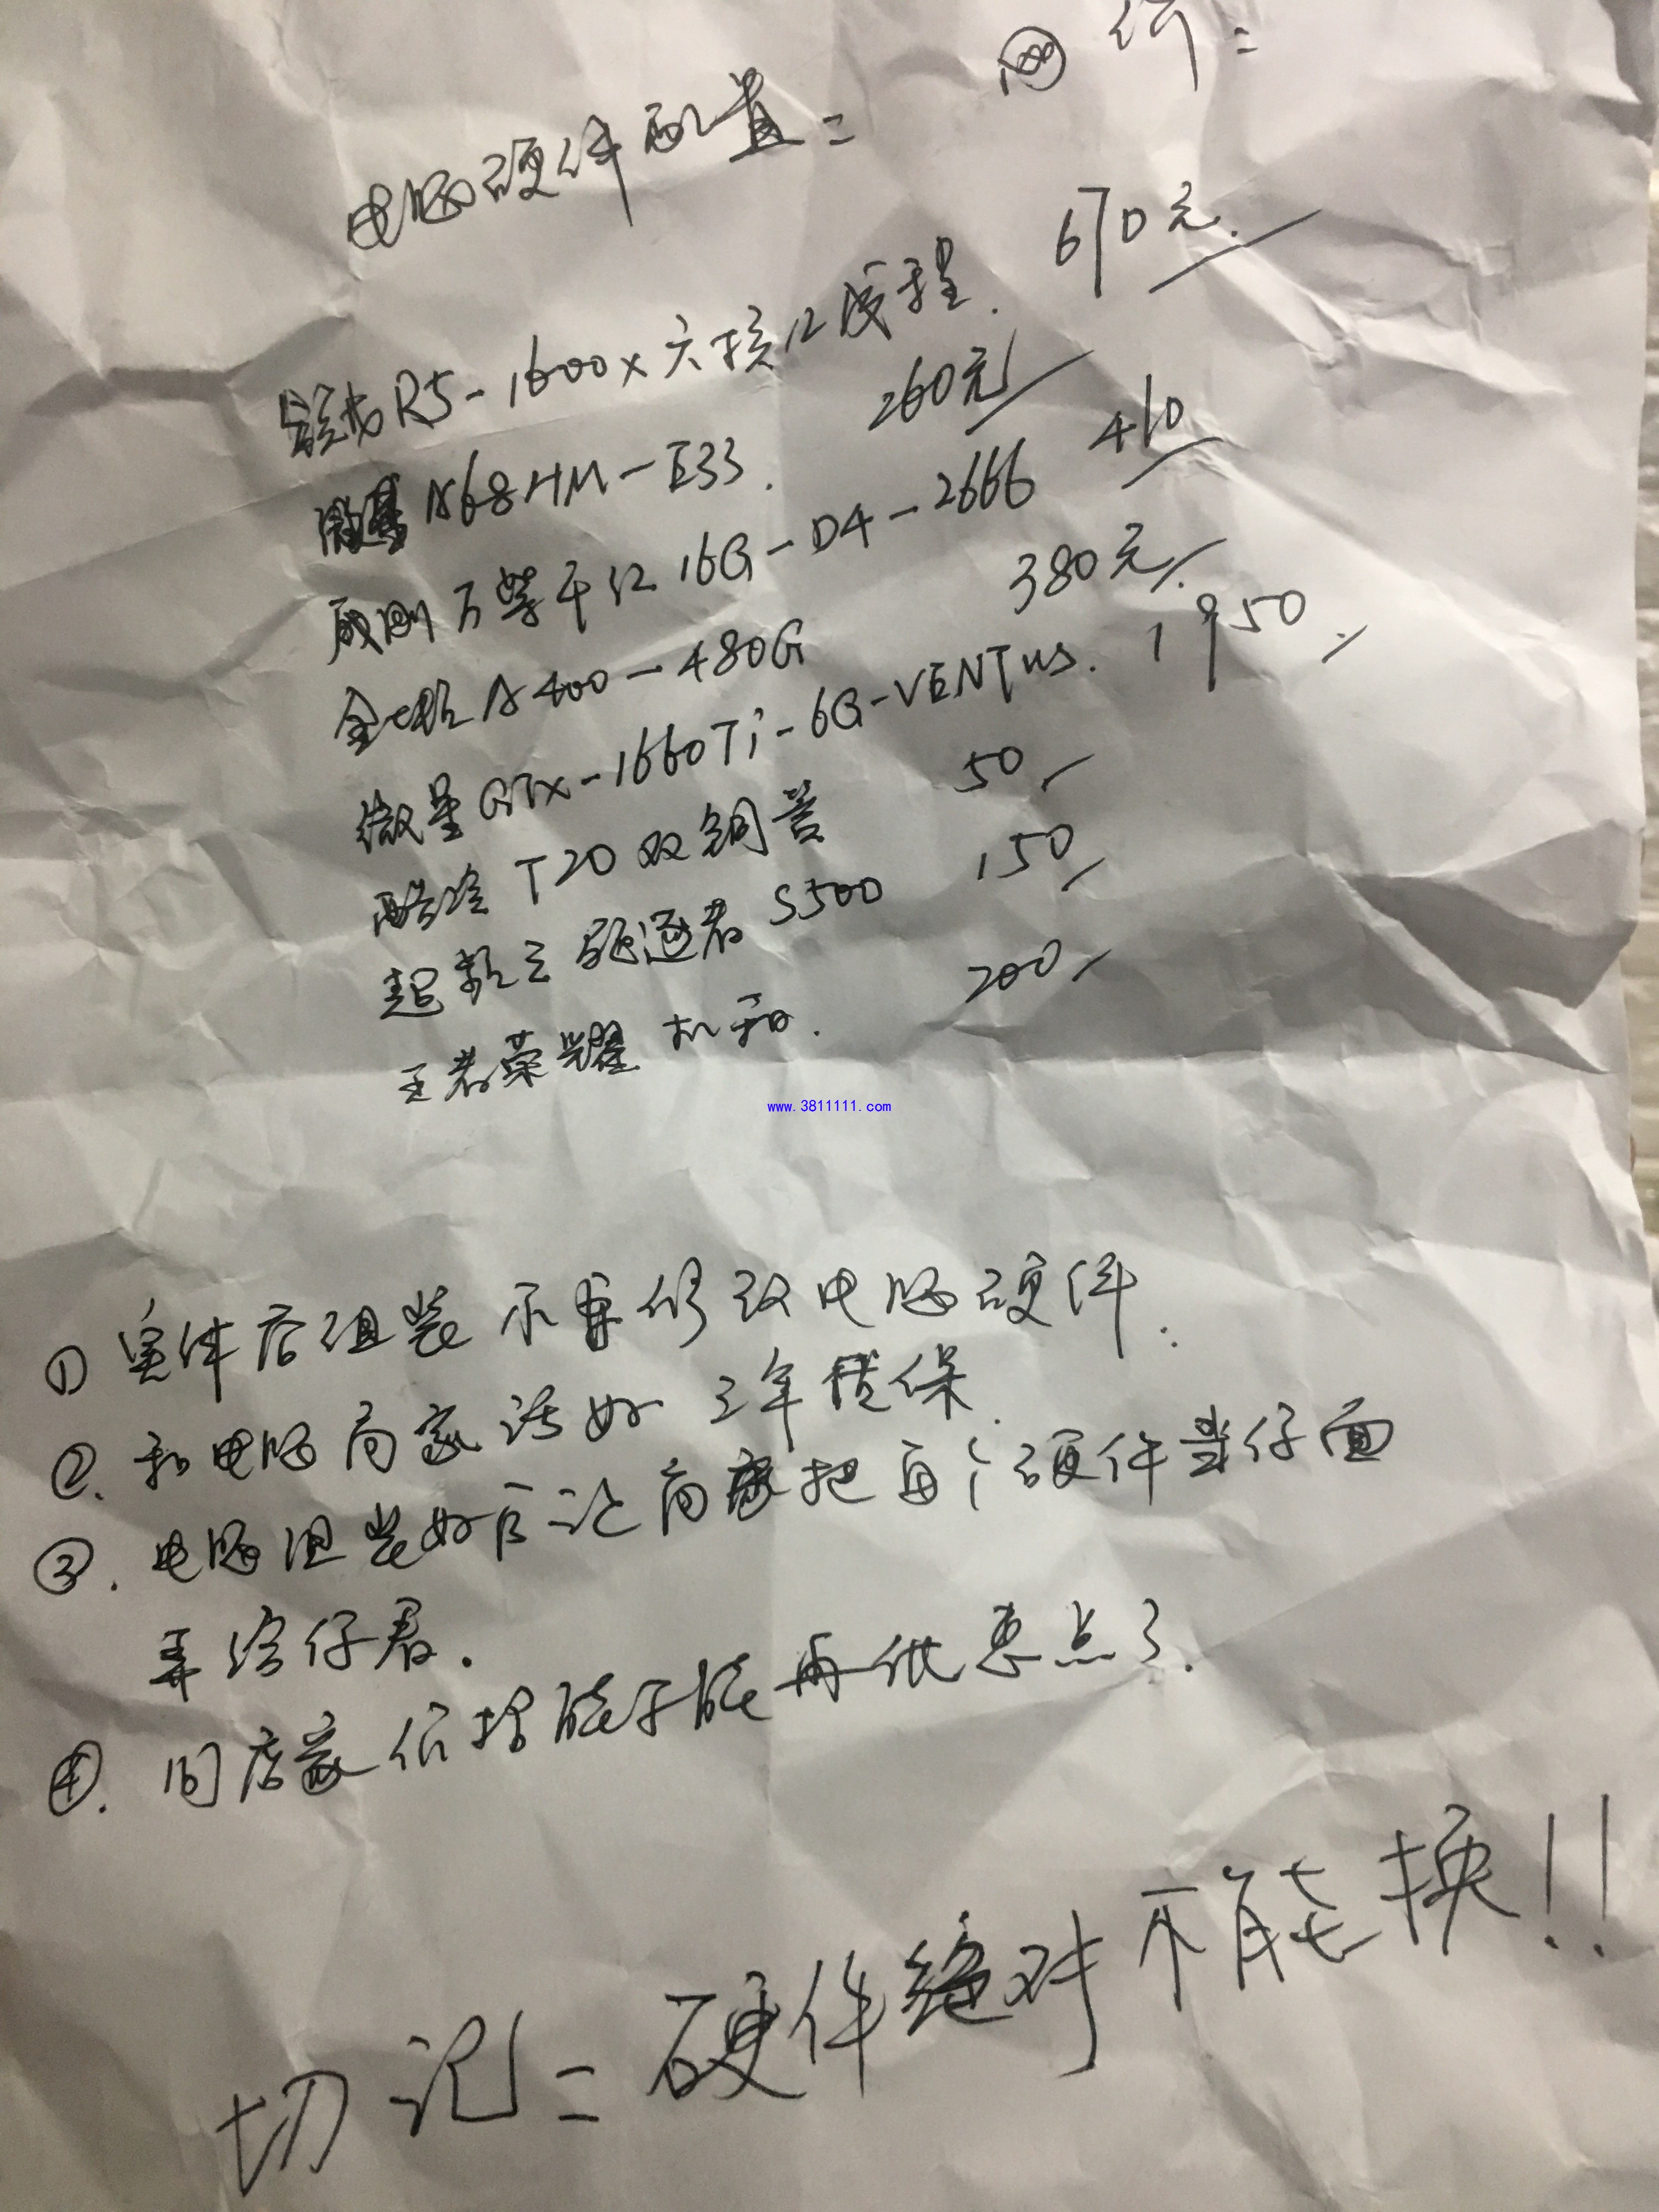 电脑硬件配置：
价：
锐龙R5-1600x六核12线程. 670元.
微星A68HM-E33. 260元
威刚万紫千红16G-D4-2666 410
金士顿A400-480G 380元
微星GTX-1660Ti-6G-VENTUS. 1950
酷冷T20双铜管 50
超频三驱逐者S500 150
王者荣耀机箱. 200
www.3811111.com
① 实体店组装不要修改电脑硬件.
②. 和电脑商家话好三年质保.
③. 电脑组装好后让商家把每个硬件当仔面
弄给仔看.
④. 问店家价格能不能再优惠点了.
切记：硬件绝对不能换!!